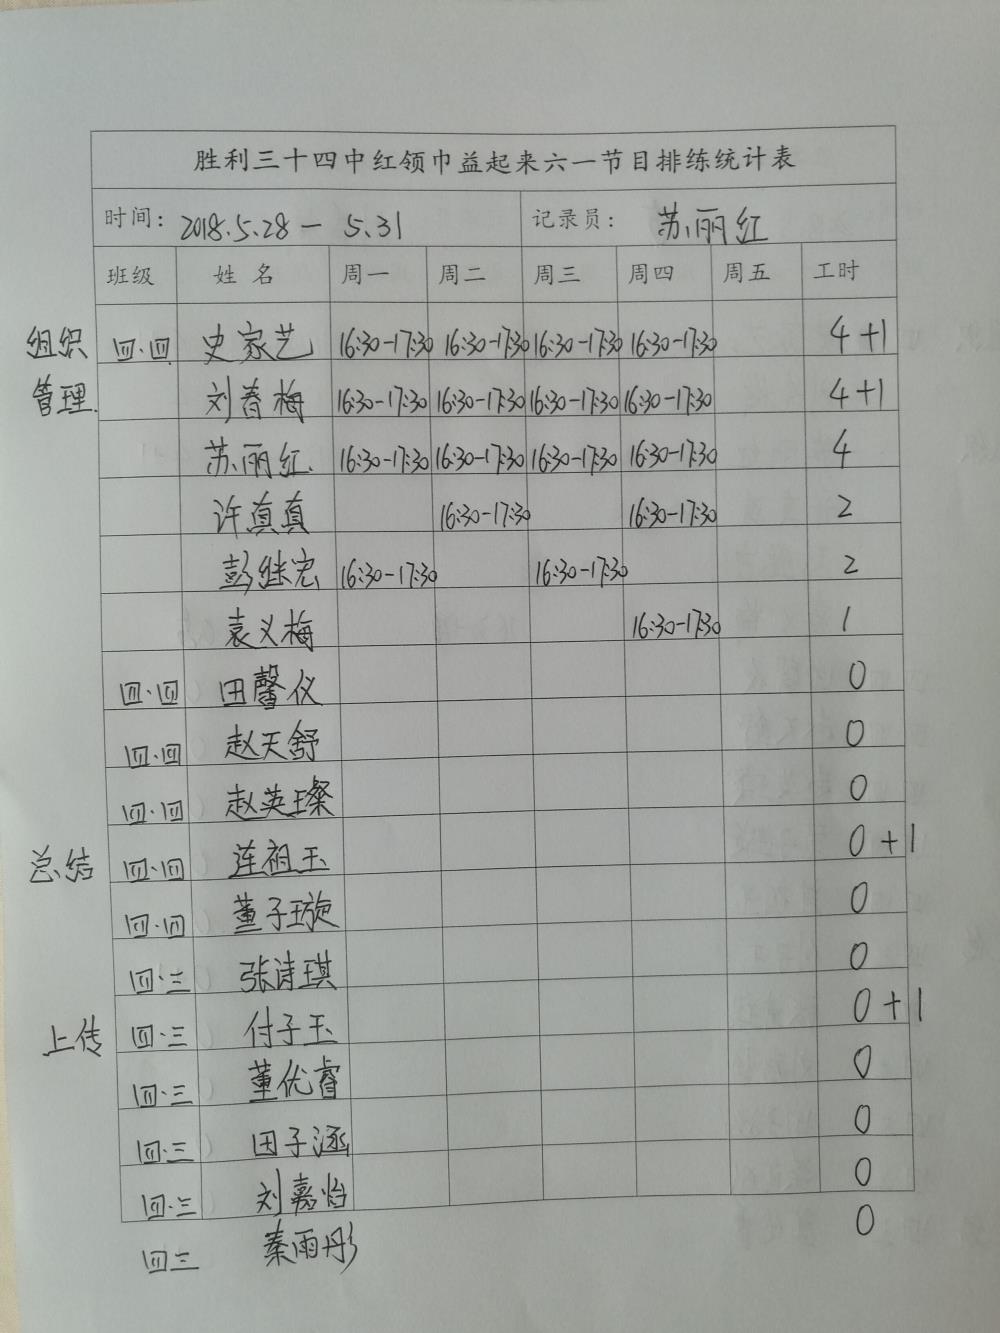 胜利三十四中红领巾益起来六一节目排练统计表
时间: 2018.5.28 — 5.31 记录员: 苏丽红
班级 姓名 周一 周二 周三 周四 周五 工时
组织 四.四 史家艺 16:30-17:30 16:30-17:30 16:30-17:30 16:30-17:30 4+1
管理. 刘春梅 16:30-17:30 16:30-17:30 16:30-17:30 16:30-17:30 4+1
苏丽红. 16:30-17:30 16:30-17:30 16:30-17:30 16:30-17:30 4
许真真 16:30-17:30 16:30-17:30 2
彭继宏 16:30-17:30 16:30-17:30 2
袁义梅 16:30-17:30 1
四.四 田馨仪 0
四.四 赵天舒 0
四.四 赵英璨 0
总结 四.四 连祖玉 0+1
四.四 董子璇 0
四.三 张诗琪 0
上传 四.三 付子玉 0+1
四.三 董优睿 0
四.三 田子涵 0
四.三 刘嘉怡 0
四三 秦雨彤 0